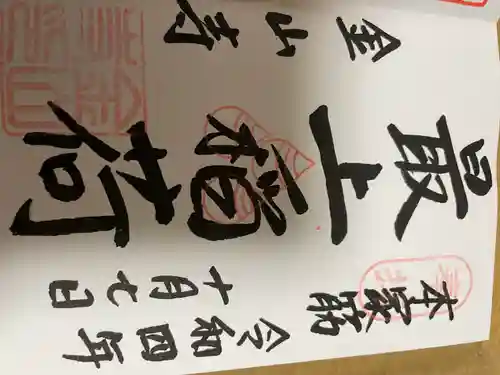 本家筋
令和四年
十月七日
最上稲荷
金山寺